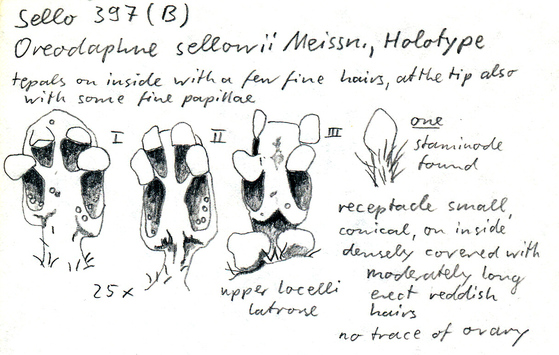 Sello 397 (B)
Oreodaphne sellowii Meissn., Holotype
tepals on inside with a few fine hairs, at the tip also
with some fine papillae
I
II
III
one
staminode
found
25 x
upper locelli
latrorse
receptacle small,
conical, on inside
densely covered with
moderately long
erect reddish
hairs
no trace of ovary